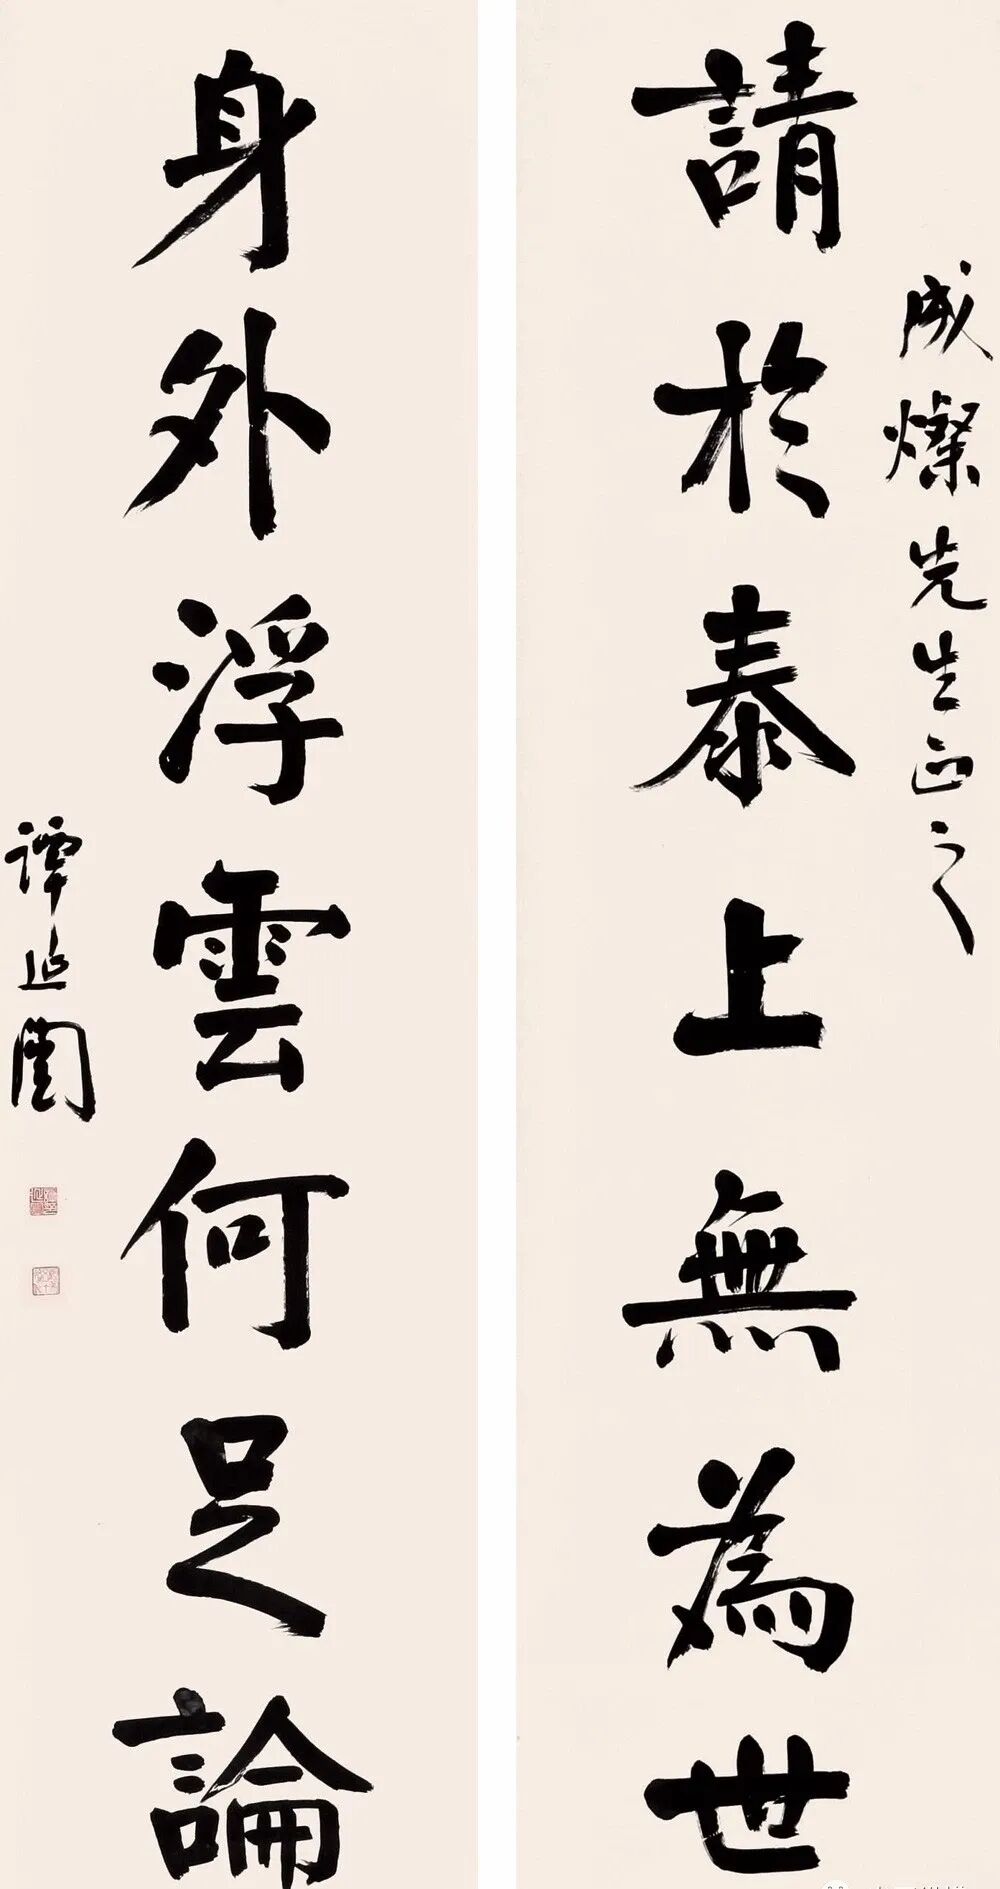 成燦先生正之
請於泰上無為世
身外浮雲何足論
譚延闓